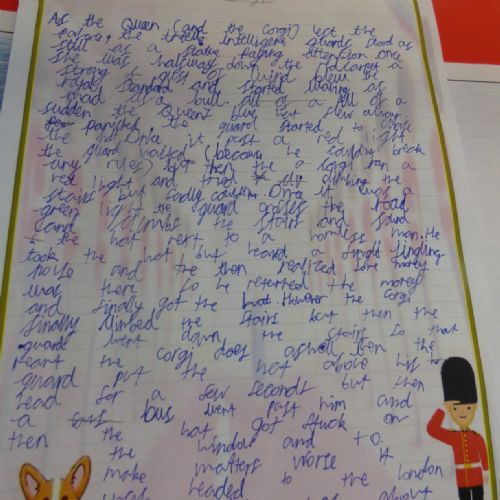 As the Queen (and the Corgi) left the
the intelligent guards stood as
still as a statue paying attention. Once
she was halfway down the red carpet a
strong gust of wind blew the
royal standard and started waving as
mad as a bull. all of a All of a
sudden the Queen's blue hat flew away.
panicked, the guard started to chase
the hat. Once it past a red light
the guard waited (because he couldn't break
any rules) but then the corgi ran a
red light and tried climbing the
stairs but sadly couldn't. Once it was a
green light the guard crosses the road
and climbs the stairs and saw
the hat next to a homless man. He
took the hat but heard a jingling
noise and he then realized some money
was there so he returned the money
and finally got the hat. However the corgi
finally climbed the stairs but then the
guard went down the stairs so that
meant the corgi does aswell. then the
guard put the hat above his
head for a few seconds but then
a bus went past him and
then the hat got stuck on
the window and to
make matters worse it
headed to the london
about